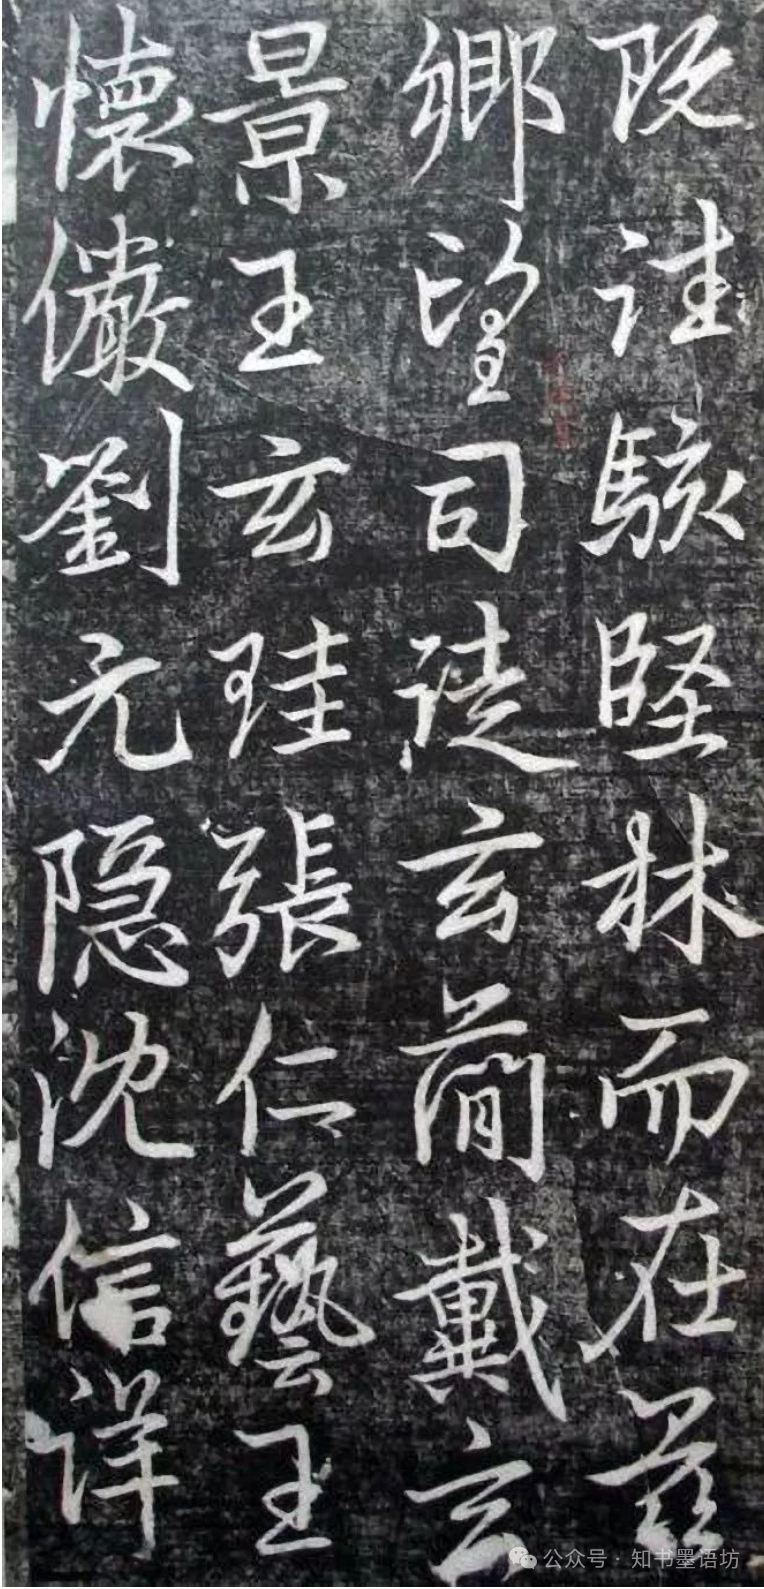 既往駭堅林而在茲
鄉望司徒玄簡戴玄
景王玄珪張仁藝王
懷儼劉元隱沈信詳
公众号·知书墨语坊